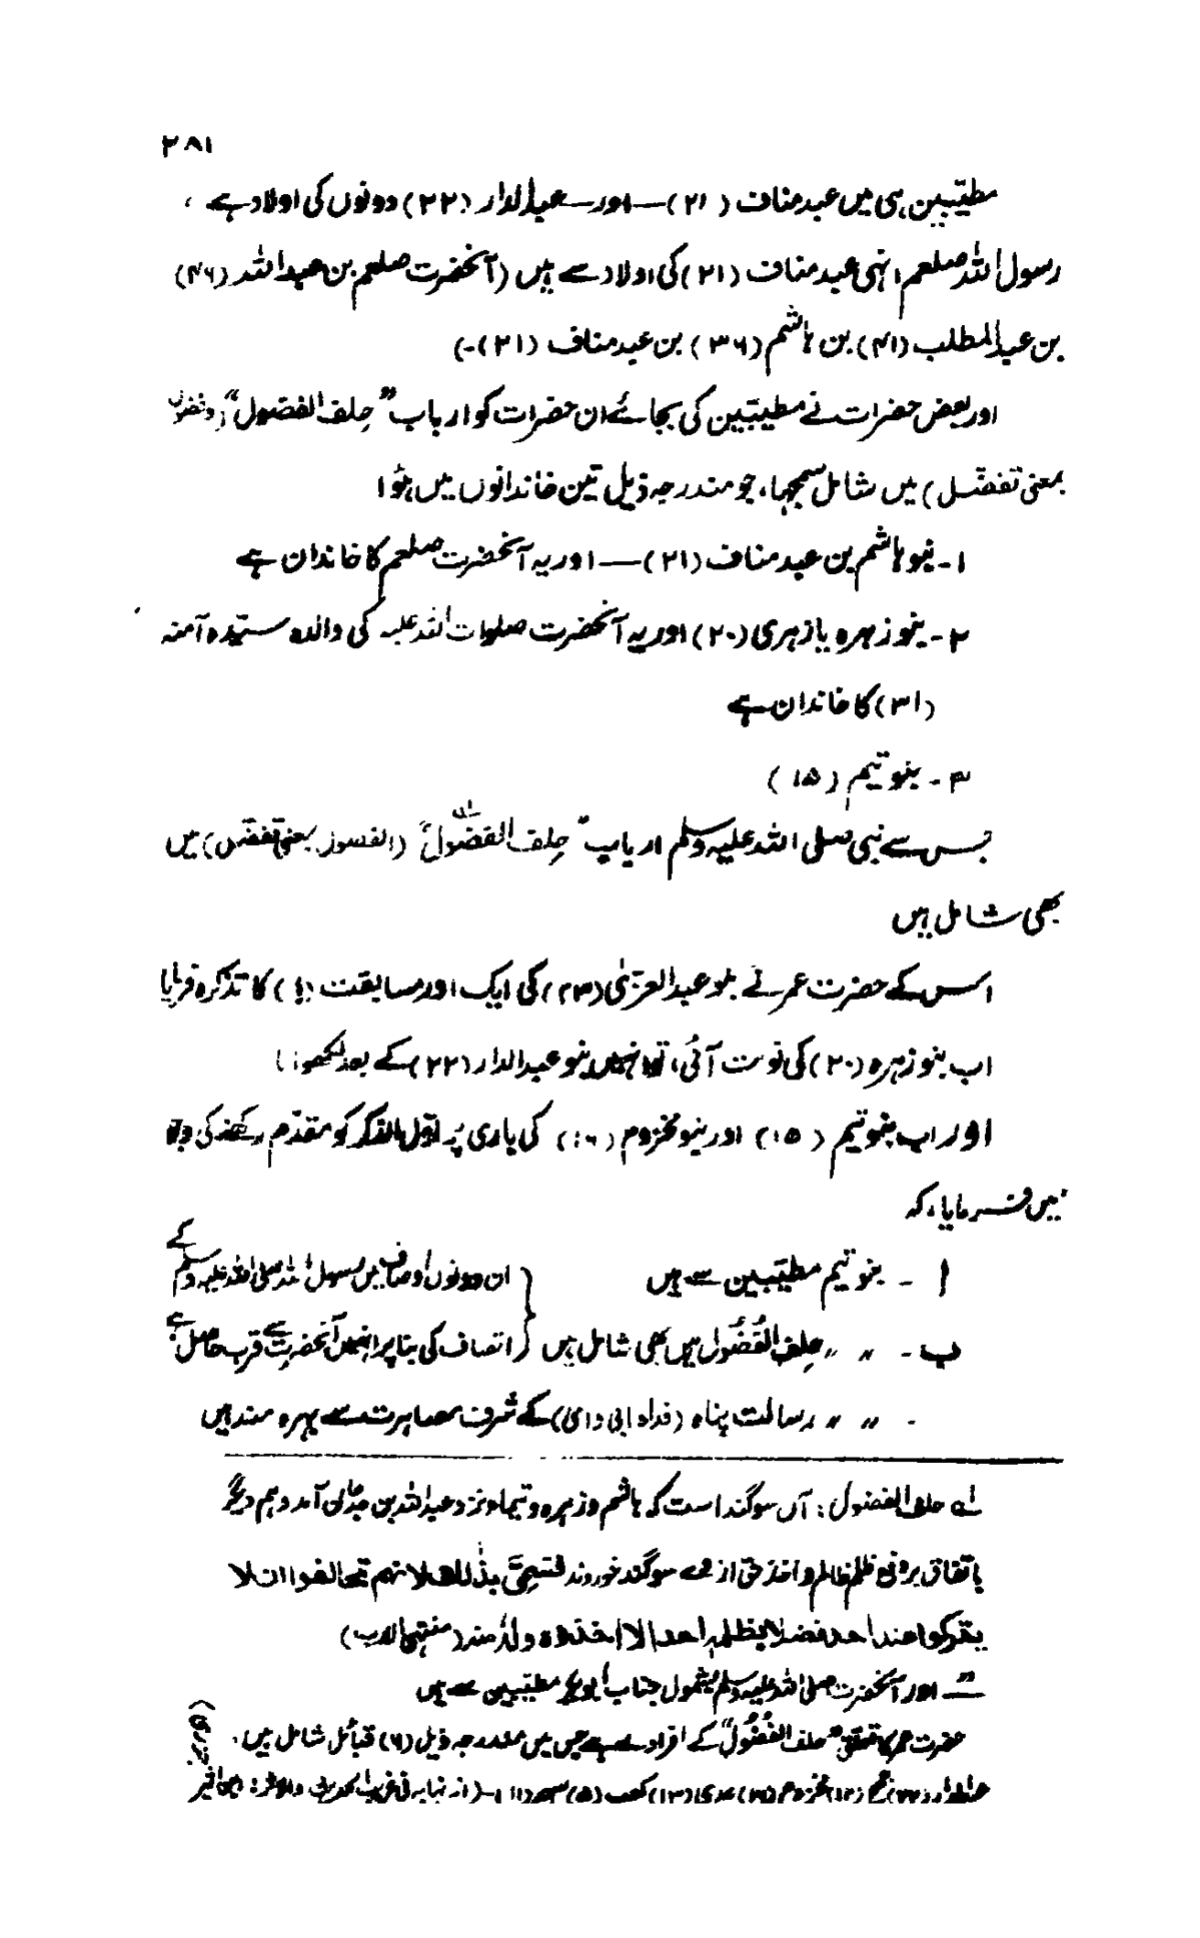 ۲۸۱
مطیّبین ہی میں عبد مناف (۲۱) — اور — عبد الدار (۲۲) دونوں کی اولاد ہے ،
رسول اللہ صلعم انہی عبد مناف (۲۱) کی اولاد سے ہیں (آنحضرت صلعم بن عبد اللہ (۴۶)
بن عبد المطلب (۴۱) بن ہاشم (۳۶) بن عبد مناف (۲۱)۔)
اور بعض حضرات نے مطیّبین کی بجائے ان حضرات کو ارباب ”حِلف الفضول“ (فضول
بمعنی تفضّل) میں شامل سمجھا، جو مندرجہ ذیل تین خاندانوں میں ہؤا
۱- بنو ہاشم بن عبد مناف (۲۱) — اور یہ آنحضرت صلعم کا خاندان ہے
۲- بنو زہرہ یا زہری (۲۰) اور یہ آنحضرت صلوات اللہ علیہ کی والدہ سیّدہ آمنہ
(۳۱) کا خاندان ہے
۳- بنو تیم (۱۵)
جس سے نبی صلی اللہ علیہ وسلم ارباب ”حِلف الفضُول“ (الفضول بمعنی تفضّل) میں
بھی شامل ہیں
اس کے حضرت عمر نے بنو عبد العزیٰ (۲۳) کی ایک اور مسابقت (!) کا تذکرہ فرمایا
اب بنو زہرہ (۲۰) کی نوبت آئی، تو انہیں بنو عبد الدار (۲۲) کے بعد لکھوا!
اور اب بنو تیم (۱۵) اور بنو مخزوم (۱۶) کی باری پر اوّل الذکر کو مقدّم رکھنے کی وجہ
میں فرمایا، کہ
ا - بنو تیم مطیّبین سے ہیں } ان دونوں اوصاف میں رسول اللہ صلی اللہ علیہ وسلم کے
ب - ” ” حِلف الفُضُول میں بھی شامل ہیں } اتصاف کی بنا پر انہیں آنحضرت سے قرب حاصل ہے
- ” ” رسالت پناہ (فداہ ابی و امی) کے شرف مصاہرت سے بہرہ مند ہیں
لہ حلف الفضول: آں سوگند است کہ ہاشم و زہرہ و تیماء نزد عبد اللہ بن جدعان آمد و ہم دیگر
باتفاق بر دفع ظلم ظالم و اخذ حق از وے سوگند خوردند فسمیّ بذٰلک لانہم تحالفوا ان لا
یترکوا عند احد فضلا یظلمہ احدا الا اخذوہ ولہٗ منہ (منتہی الارب)
اور آنحضرت صلی اللہ علیہ وسلم بشمول جناب ابو بکر مطیّبین سے ہیں
حضرت عمر کا تعلق ”حلف الفُضُول“ کے افراد سے ہے جس میں مندرجہ ذیل (۶) قبائل شامل ہیں،
عبد الدار (۲۲) جمح (۱۲) مخزوم عدی (۱۳) کعب (۵) سہم (از نہایہ فی غریب الحدیث والاثر: ابن اثیر
جزری)